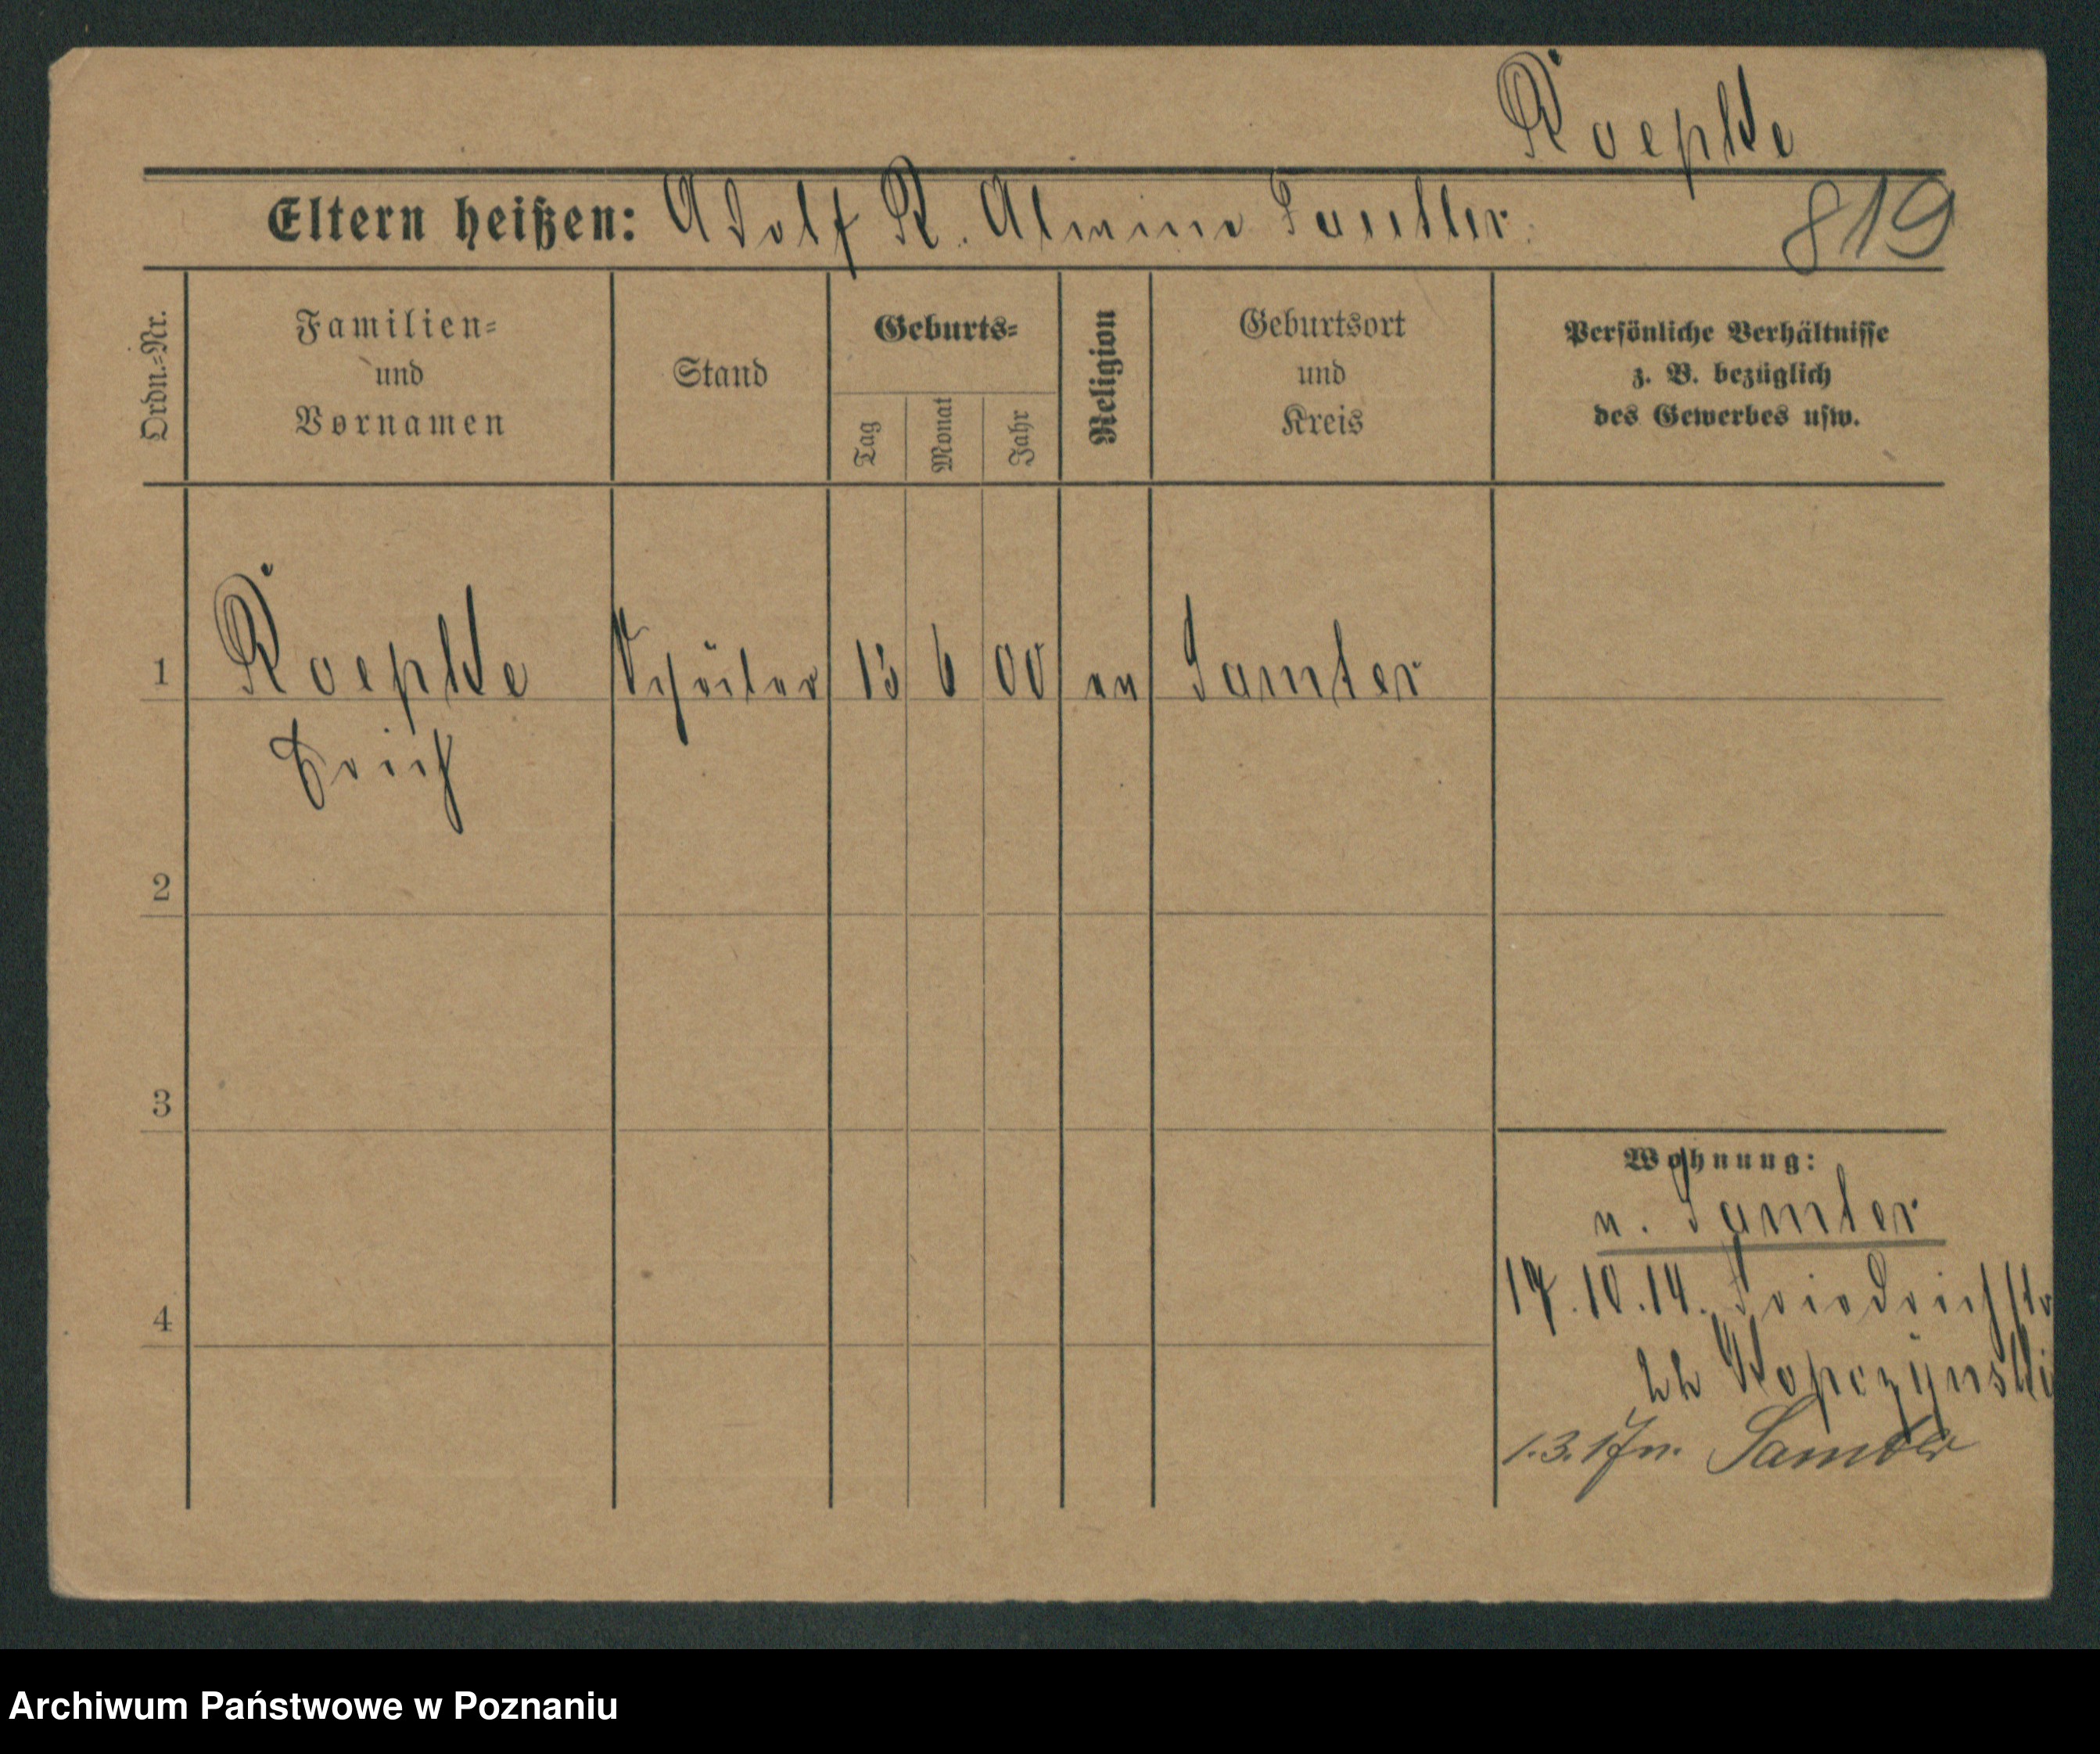 Roepke
Eltern heißen: Adolf R. Alwine Sauttler.
819
Ordn.-Nr.
Familien-
und
Vornamen
Stand
Geburts-
Tag
Monat
Jahr
Religion
Geburtsort
und
Kreis
Persönliche Verhältnisse
z. B. bezüglich
des Gewerbes usw.
1 Roepke Schüler 13 6 00 ev Samter
Erich
2
3
4
Wohnung:
n. Samter
17.10.14. Friedrichstr
22 Kopczynski
1.3.17 n. Samter
Archiwum Państwowe w Poznaniu